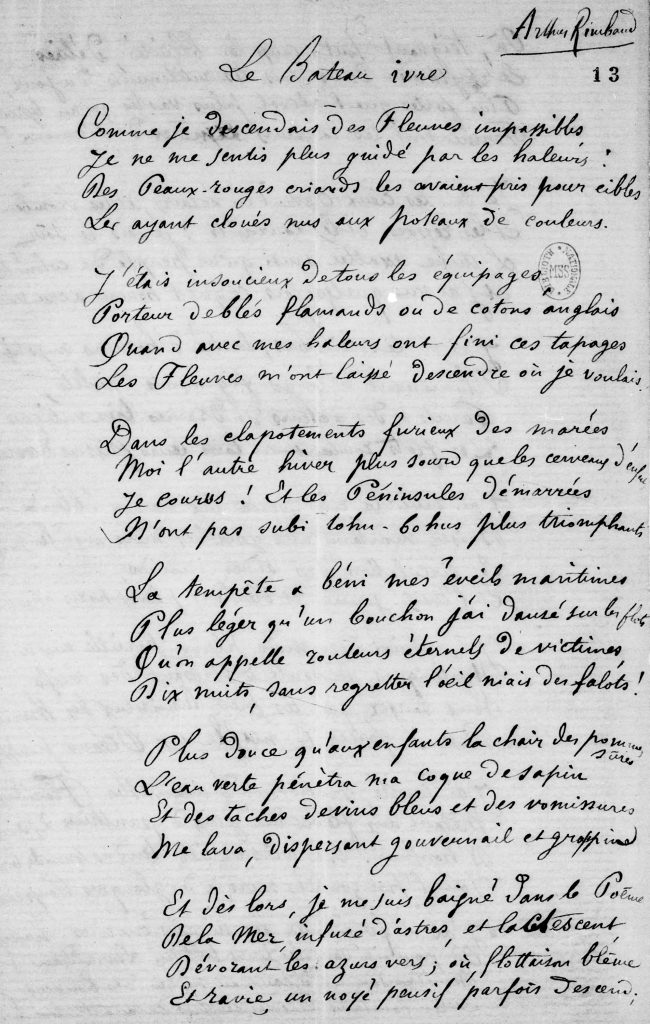 Arthur Rimbaud
13
Le Bateau ivre
Comme je descendais des Fleuves impassibles
Je ne me sentis plus guidé par les haleurs :
Des Peaux-rouges criards les avaient pris pour cibles
Les ayant cloués nus aux poteaux de couleurs.
J'étais insoucieux de tous les équipages,
Porteur de blés flamands ou de cotons anglais
Quand avec mes haleurs ont fini ces tapages
Les Fleuves m'ont laissé descendre où je voulais.
Dans les clapotements furieux des marées
Moi l'autre hiver plus sourd que les cerveaux d'enfants
Je courus ! Et les Péninsules démarrées
N'ont pas subi tohu-bohus plus triomphants
La tempête a béni mes éveils maritimes
Plus léger qu'un bouchon j'ai dansé sur les flots
Qu'on appelle rouleurs éternels de victimes,
Dix nuits, sans regretter l'œil niais des falots !
Plus douce qu'aux enfants la chair des pommes sûres
L'eau verte pénétra ma coque de sapin
Et des taches de vins bleus et des vomissures
Me lava, dispersant gouvernail et grappin
Et dès lors, je me suis baigné dans le Poème
De la Mer, infusé d'astres, et lactescent
Dévorant les azurs vers ; où, flottaison blême
Et ravie, un noyé pensif parfois descend ;
BIBLIOTH. NATIONALE
MSS